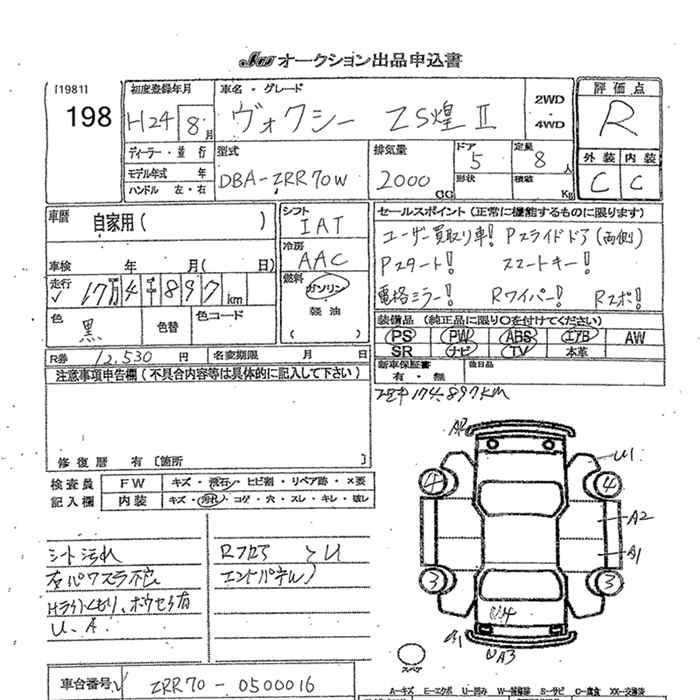 JU オークション出品申込書
[1981]
198
初度登録年月
H24 8月
車名・グレード
ヴォクシー ZS煌Ⅱ
2WD
・
4WD
評価点
R
ディーラー・並行
モデル年式 年
ハンドル 左・右
型式
DBA-ZRR70W
排気量
2000 CC
ドア
5
形状
定員
8人
積載 Kg
外装 内装
C C
車歴 自家用( )
車検 年 月( 日)
走行 17万4千897km
色 黒
色替
色コード
R券 12,530円
名変期限 月 日
シフト
IAT
冷房
AAC
燃料
ガソリン
・
軽油
( )
セールスポイント(正常に機能するものに限ります)
ユーザー買取り車! Pスライドドア(両側)
Pスタート! スマートキー!
電格ミラー! Rワイパー! Rスポ!
装備品(純正品に限り○を付けてください)
PS PW ABS エアB AW
SR ナビ TV 本革
新車保証書
有・無
後日品
174,897KM
注意事項申告欄(不具合内容等は具体的に記入して下さい)
修復歴 有〔箇所 〕
検査員
記入欄
FW キズ・飛石・ヒビ割・リペア跡・×要
内装 キズ・汚れ・コゲ・穴・スレ・キレ・壊レ
シート汚れ
左パワスラ不良
Hライトくもり、ボウセイ有
U、A
Rフロア U
エンドパネル
A2
U1
4 4
A2
A1
3 3
U4
B1
UA3
スペア
車台番号 ZRR70-0500016
A-キズ E-エクボ U-凹み W-補修跡 S-サビ C-腐食 XX-交換済